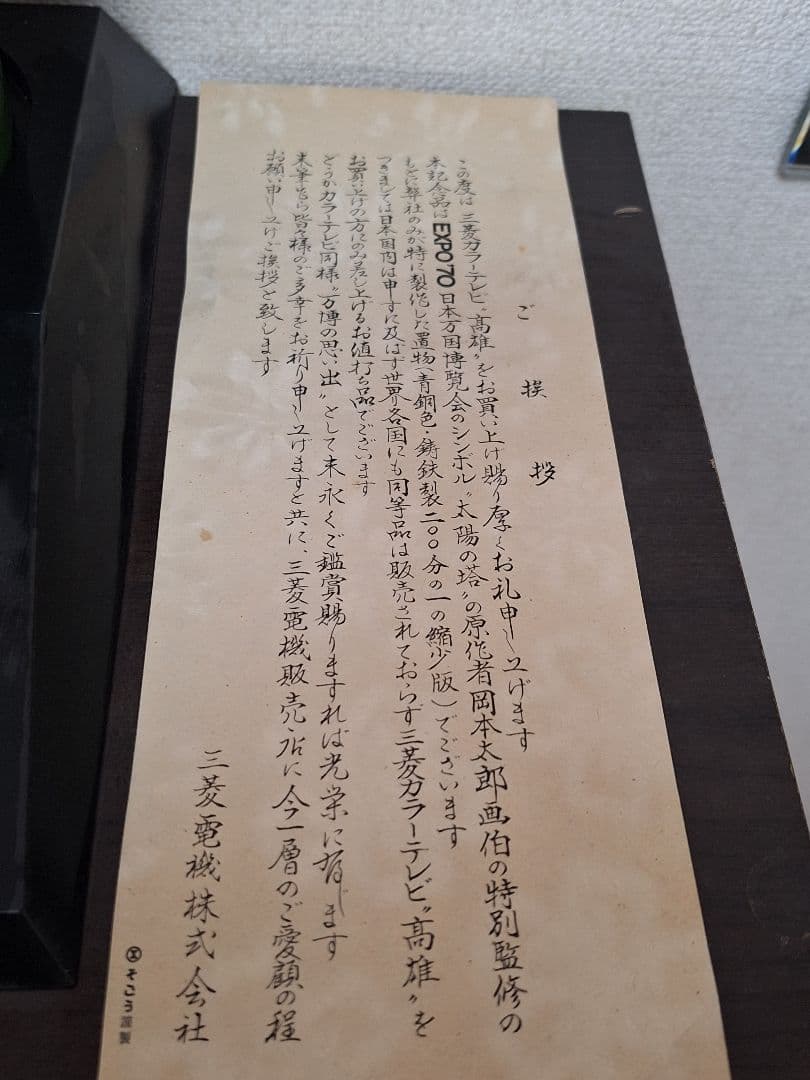 ご挨拶
この度は三菱カラーテレビ〝高雄〟をお買い上げ賜り厚くお礼申し上げます
本記念品はEXPO'70日本万国博覧会のシンボル〝太陽の塔〟の原作者岡本太郎画伯の特別監修の
もとに弊社のみが特に製作した置物(青銅色・鋳鉄製二〇〇分の一の縮少版)でございます
つきましては日本国内は申すに及ばず世界各国にも同等品は販売されておらず三菱カラーテレビ〝高雄〟を
お買い上げの方にのみ差し上げるお値打ち品でございます
どうかカラーテレビ同様〝万博の思い出〟として末永くご鑑賞賜りますれば光栄に存じます
末筆乍ら皆々様のご多幸をお祈り申し上げますと共に、三菱電機販売店に今一層のご愛顧の程
お願い申し上げご挨拶と致します
三菱電機株式会社
そごう謹製